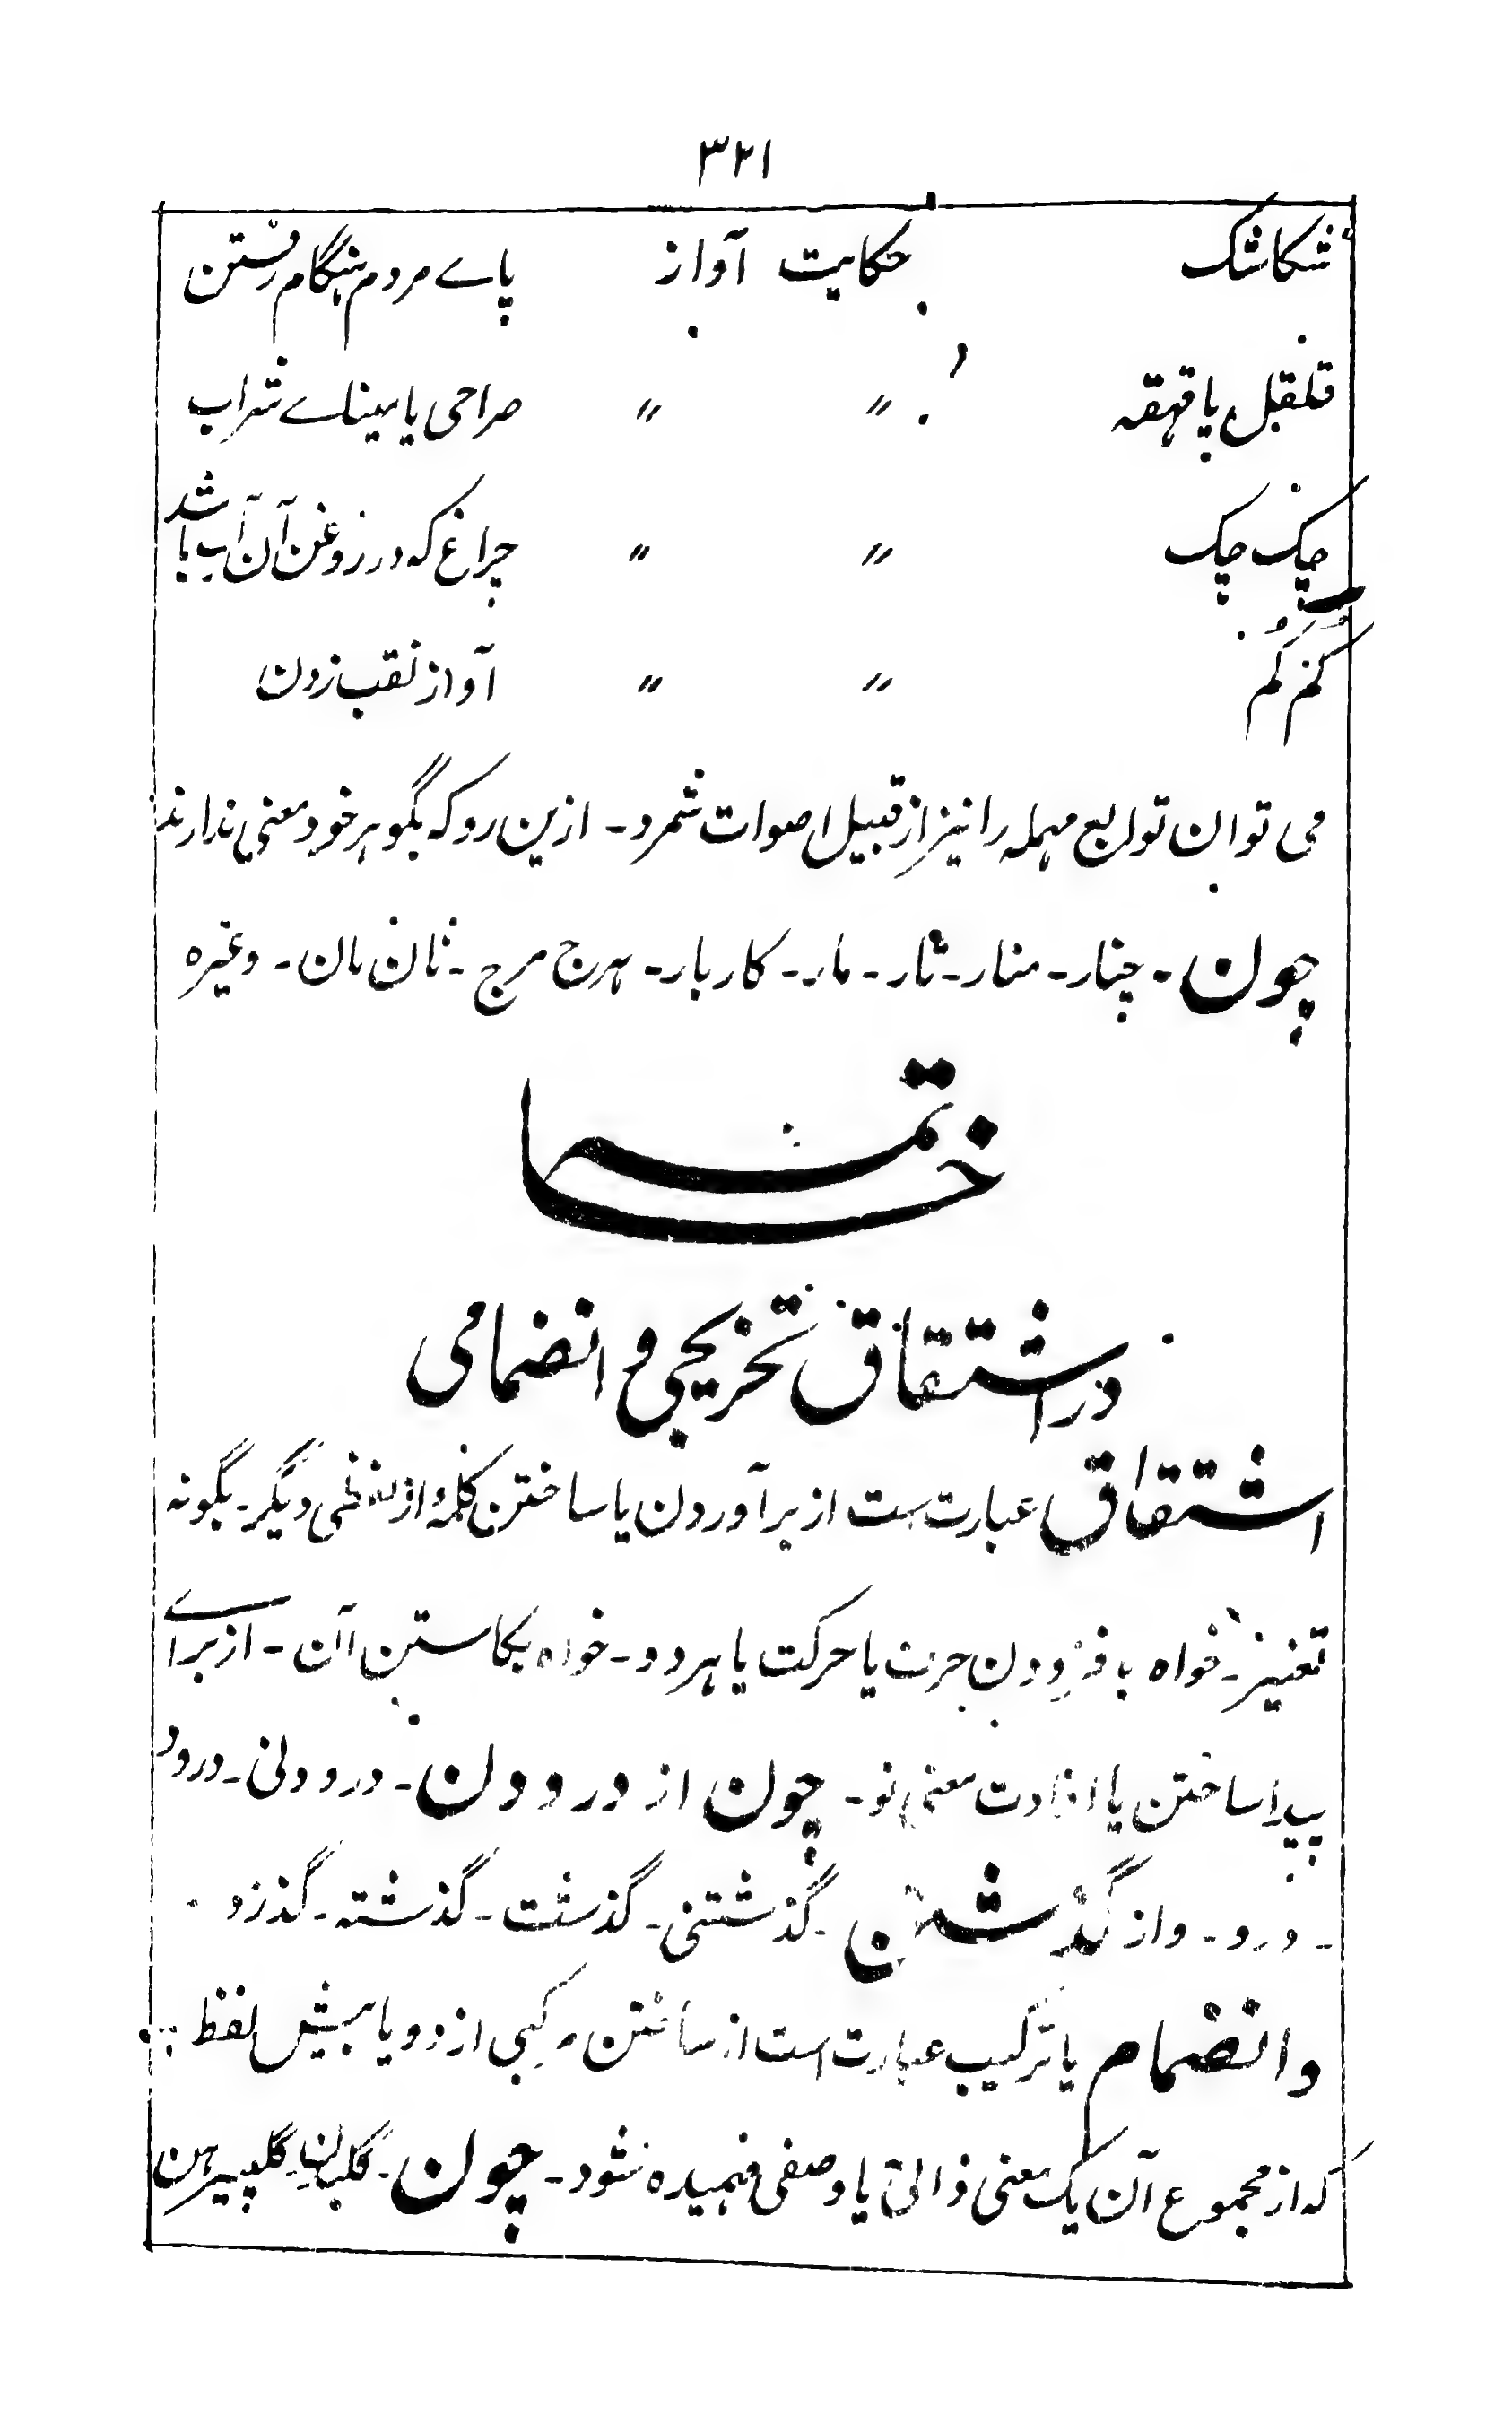 ۳۲۱
شکاشک حکایت آواز پاے مردم ہنگام رفتن
قلقل یا قہقہ " " صراحی یا میناے شراب
چک چک " " چراغ کہ در روغن آن آب باشد
کم کم " " آواز نقب زدن
می توان توابع مہملہ را نیز از قبیل اصوات شمرد۔ ازین رو کہ بگوہر خود معنی ندارند
چون۔ چنار۔ منار۔ تار۔ مار۔ کار بار۔ ہرج مرج۔ نان مان۔ وغیرہ
خاتمہ
در اشتقاق تخریجی و انضمامی
اشتقاق عبارت ست از برآوردن یا ساختن کلمۂ از لفظی دیگر۔ بگونہ
تغییر۔ خواہ بافزودن حرف یا حرکت یا ہر دو۔ خواہ بکاستن آن۔ از براے
پیدا ساختن یا افادت معنی نو۔ چون از درودن۔ درودنی۔ درود
۔ درو۔ و از گذشتن۔ گذشتنی۔ گذشت۔ گذشتہ۔ گذرد
و انضمام یا ترکیب عبارت است از ساختن مرکبی از دو یا بیش لفظ
کہ از مجموع آن یک معنی ذاتی یا وصفی فہمیدہ شود۔ چون۔ گلبدن۔ گلپیرہن